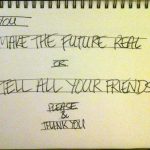 YOU
MAKE THE FUTURE REAL
OR
TELL ALL YOUR FRIENDS
PLEASE
&
THANK YOU